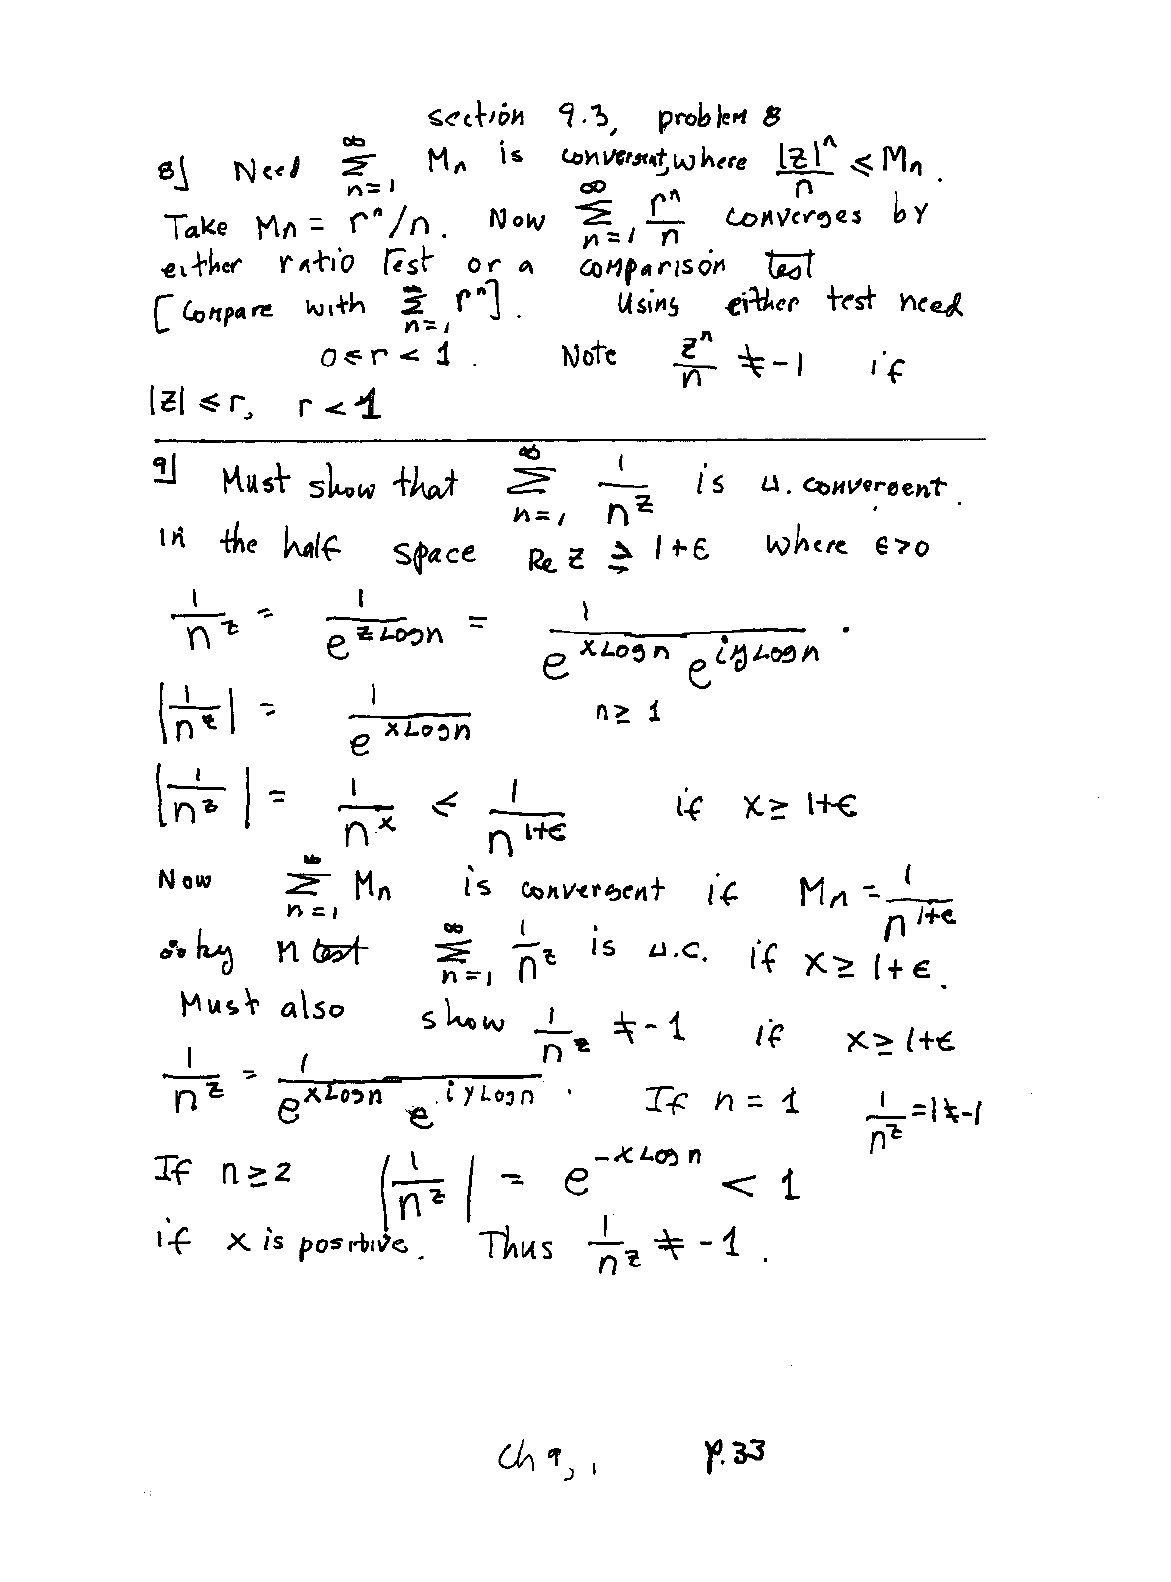 section 9.3, problem 8
8] Need ∑_{n=1}^∞ Mn is convergent, where |z|^n/n ≤ Mn.
Take Mn = r^n/n. Now ∑_{n=1}^∞ r^n/n converges by
either ratio Test or a comparison test
[Compare with ∑_{n=1}^∞ r^n]. Using either test need
0≤r<1. Note z^n/n ≠ -1 if
|z| ≤ r, r<1
9] Must show that ∑_{n=1}^∞ 1/n^z is u. convergent
in the half space Re z ≥ 1+ϵ where ϵ>0
1/n^z = 1/e^{z Log n} = 1/(e^{x Log n} e^{iy Log n}).
|1/n^z| = 1/e^{x Log n} n≥1
|1/n^z| = 1/n^x ≤ 1/n^{1+ϵ} if x≥1+ϵ
Now ∑_{n=1}^∞ Mn is convergent if Mn = 1/n^{1+ϵ}
∴ by M test ∑_{n=1}^∞ 1/n^z is u.c. if x≥1+ϵ.
Must also show 1/n^z ≠ -1 if x≥1+ϵ
1/n^z = 1/(e^{x Log n} e^{iy Log n}). If n=1 1/n^z = 1≠-1
If n≥2 |1/n^z| = e^{-x Log n} < 1
if x is positive. Thus 1/n^z ≠ -1.
Ch 9, p.33